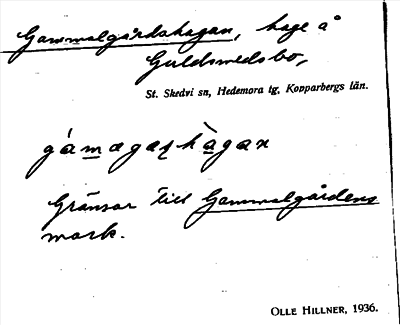 Gammalgårdshagan, hage å
Guldsmedsbo,
St. Skedvi sn, Hedemora tg, Kopparbergs län.
gámagaʂhàgan
Gränsar till Gammalgårdens
mark.
OLLE HILLNER, 1936.